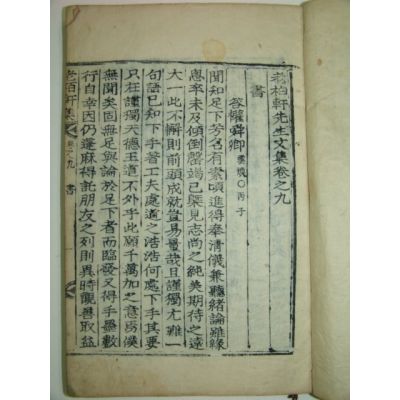 老柏軒先生文集卷之九
書
答權舜卿 雲煥○丙子
聞知足下芳名有素頃進得奉清儀兼聽緒論雖緣
悤卒未及傾倒罄竭已槩見志尚之純美期待之遠
大一此不懈則前頭成就豈易量哉且謹獨尤難一
句語已知下手著工夫處道之浩浩何處下手其要
只在謹獨天德王道不外乎此願千萬加之意焉僕
無聞矣固無足與論於足下者而臨發又得手墨數
行自幸因仍蓬麻得託朋友之列則異時觀善取益
老柏軒集 卷之九 書 一